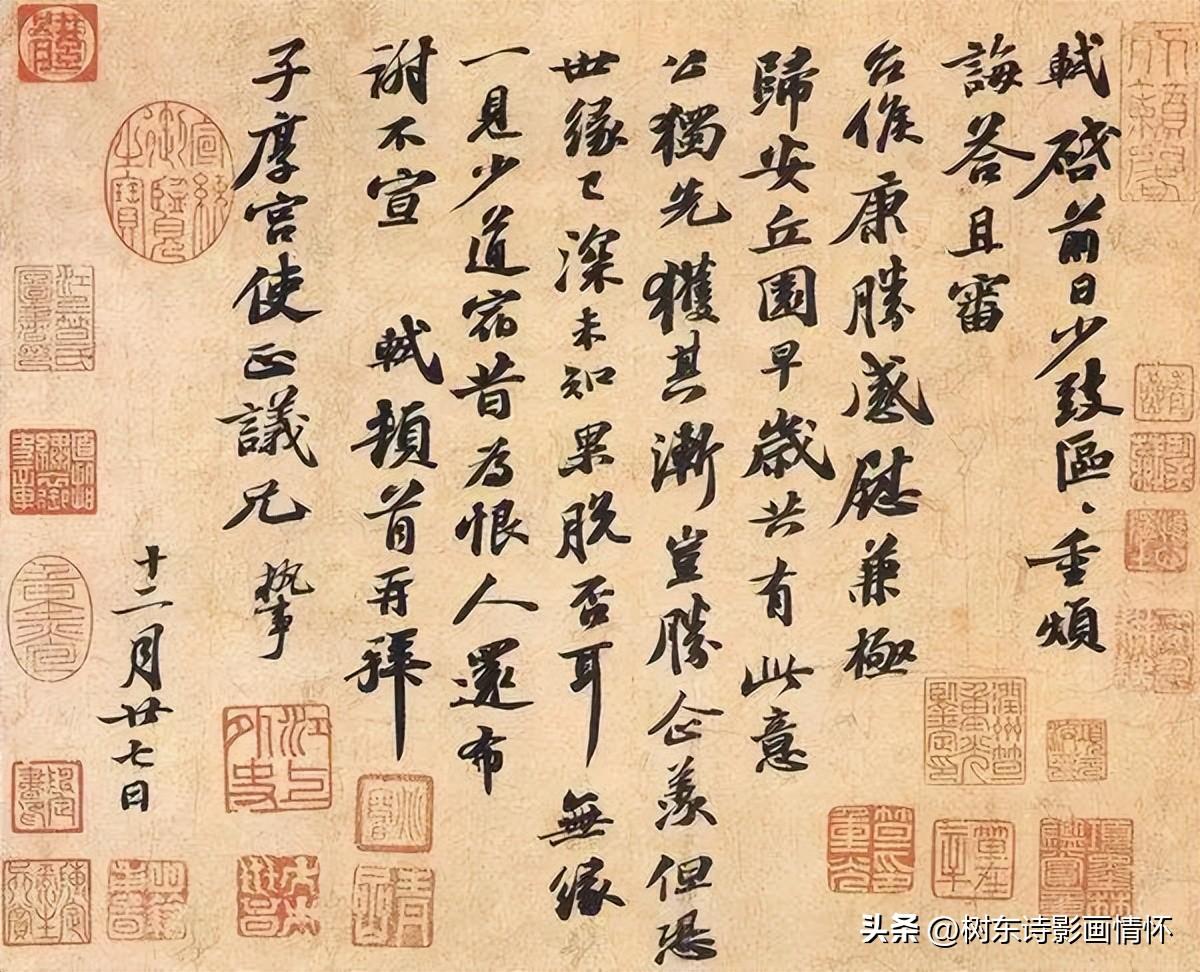 軾啓前日少致區〻重煩
誨荅且審
台候康勝感慰兼極
歸安丘園早歲共有此意
公獨先獲其漸豈勝企羨但恐
世緣已深未知果脫否耳無緣
一見少道宿昔為恨人還布
謝不宣 軾頓首再拜
子厚宮使正議兄 執事
十二月廿七日
头条 @树东诗影画情怀